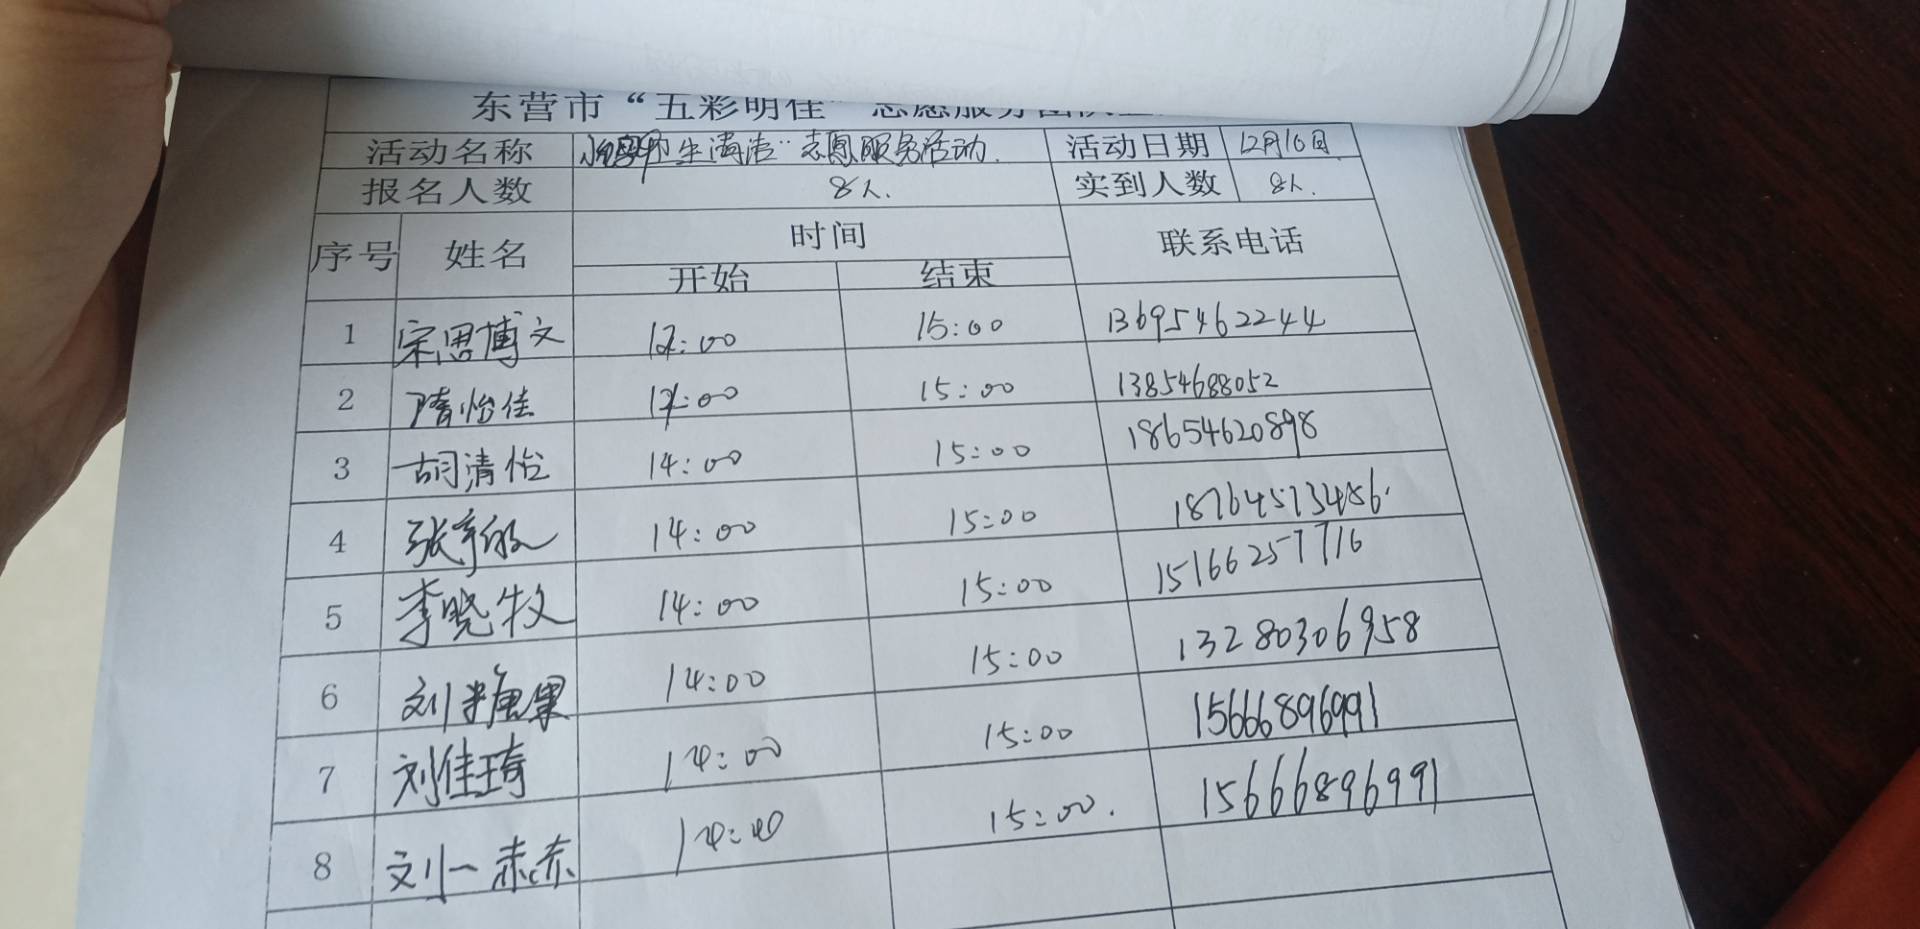 东营市“五彩明佳”志愿服务团队
活动名称 卫生清洁”志愿服务活动. 活动日期 12月16日.
报名人数 8人. 实到人数 8人.
序号 姓名 时间 联系电话
开始 结束
1 宋思博文 14:00 15:00 13695462244
2 隋怡佳 14:00 15:00 13854688052
3 胡清怡 14:00 15:00 18654620898
4 张 14:00 15:00 18764573456.
5 李晓牧 14:00 15:00 15166257716
6 刘糖果 14:00 15:00 13280306958
7 刘佳琦 14:00 15:00 15666896991
8 刘一 14:00 15:00. 15666896991